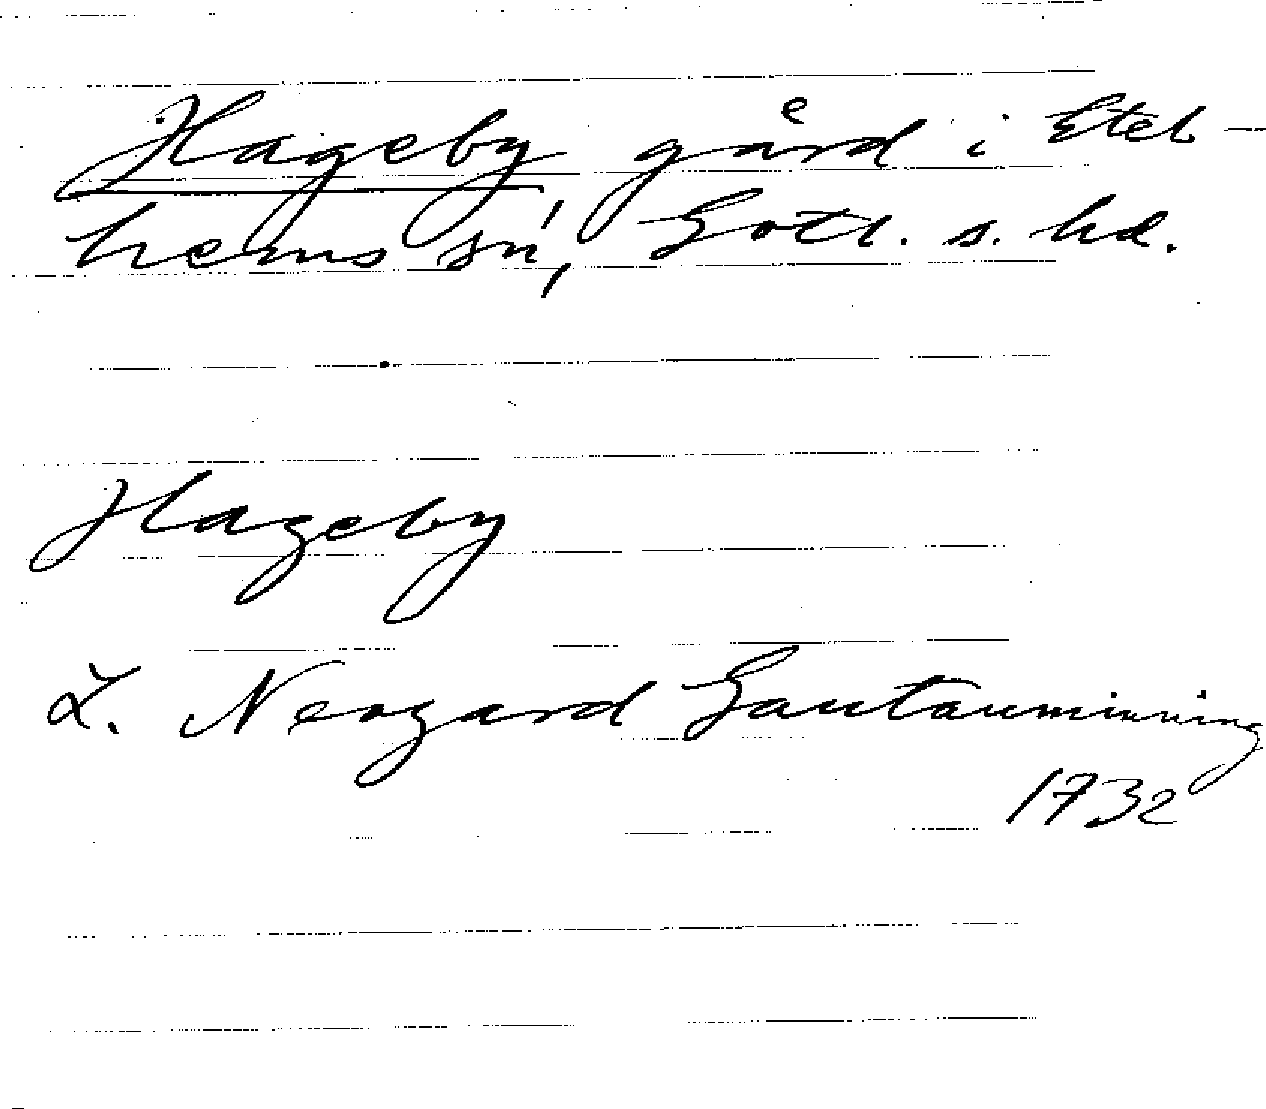 Hageby gård i Etel-
hems sn, Gotl. s. hd.
Hageby
L. Neogard Gautauminning
1732